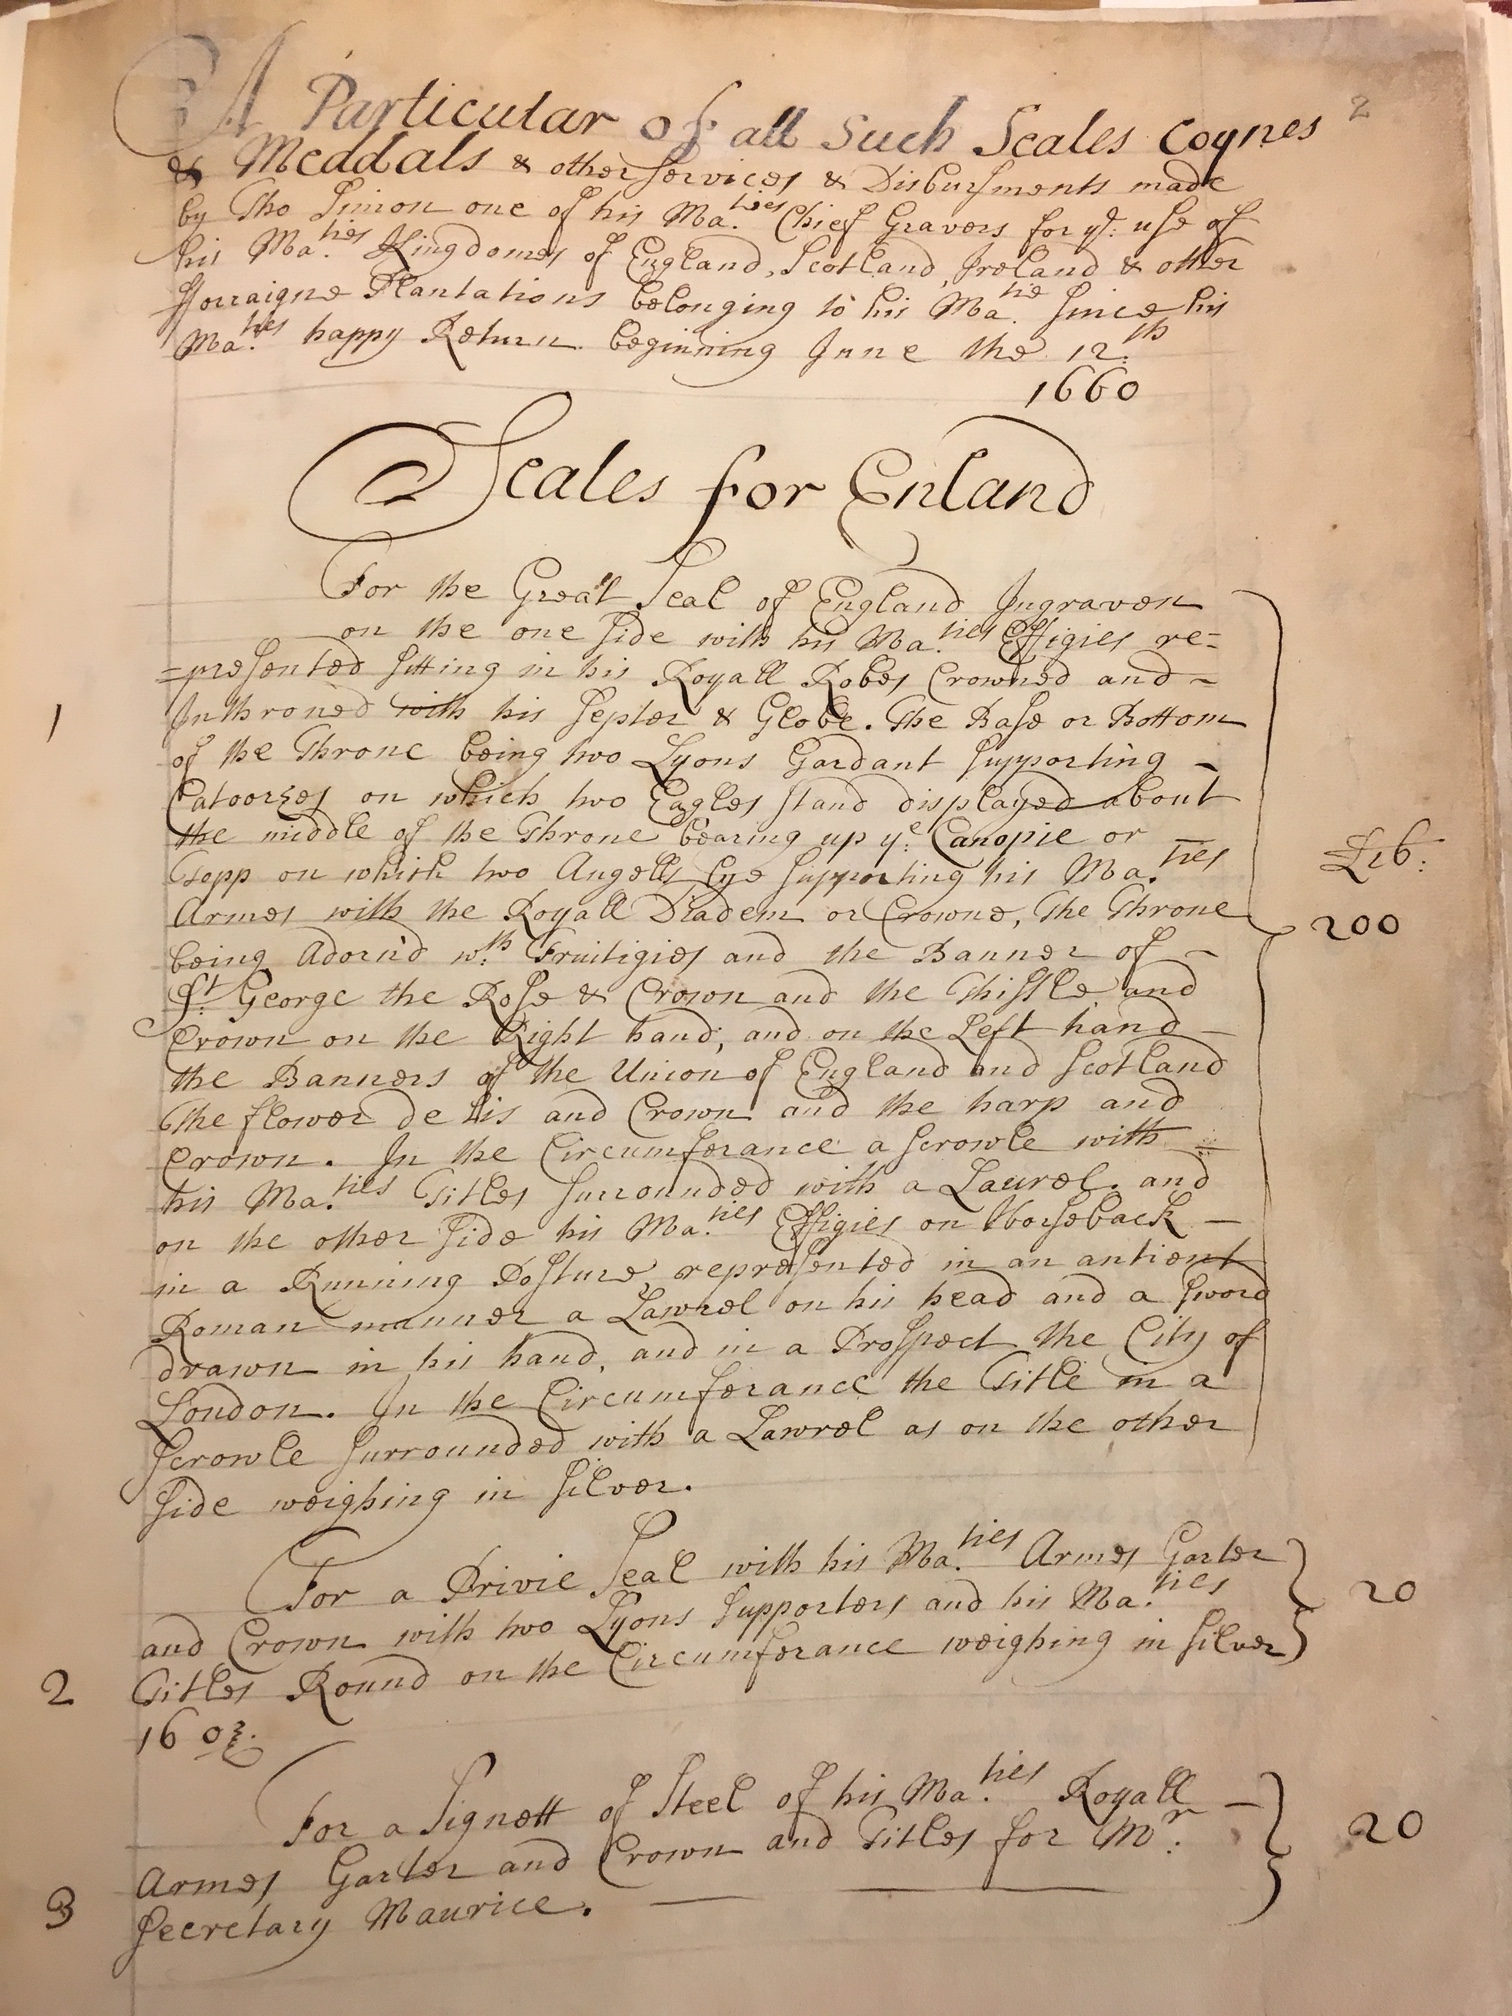 A Particular of all Such Seales Coynes 2
& Meddals & other Services & Disbursments made
by Tho Simon one of his Ma.ties Chief Gravers for ye: use of
his Ma.ties Kingdomes of England, Scotland, Ireland & other
fforraigne Plantations belonging to his Ma.tie Since his
Ma.ties happy Return beginning June the 12.th
1660
Seales for Enland
For the Great Seal of England Ingraven
on the one side with his Ma.ties Effigies re=
=presented sitting in his Royall Robes Crowned and -
1 Inthroned with his Septer & Globe. The Base or Bottom
of the Throne being two Lyons Gardant supporting -
Catoorzes on which two Eagles stand displayed about
the middle of the Throne bearing up ye: Canopie or -
Topp on which two Angells Lye supporting his Ma.ties Lib:
Armes with the Royall Diadem or Crowne, The Throne 200
being Adorn'd w.th Fruitigies and the Banner of -
St. George the Rose & Crown and the Thistle and
Crown on the Right hand; and on the Left hand -
the Banners of the Union of England and Scotland
The flower de Lis and Crown and the harp and
Crown. In the Circumferance a scrowle with =
his Ma.ties Titles surrounded with a Laurel. and
on the other side his Ma.ties Effigies on Horseback -
in a Running Posture, represented in an antient
Roman manner a Lawrel on his head and a sword
drawn in his hand, and in a Prospect the City of
London. In the Circumferance the Title in a
scrowle surrounded with a Lawrel as on the other
side weighing in silver.
For a Privie Seal with his Ma.ties Armes Garter
and Crown with two Lyons supporters and his Ma.ties 20
2 Titles Round on the Circumferance weighing in silver
16 oz.
For a Signett of Steel of his Ma.ties Royall -
Armes Garter and Crown and Titles for Mr. 20
3 Secretary Maurice.